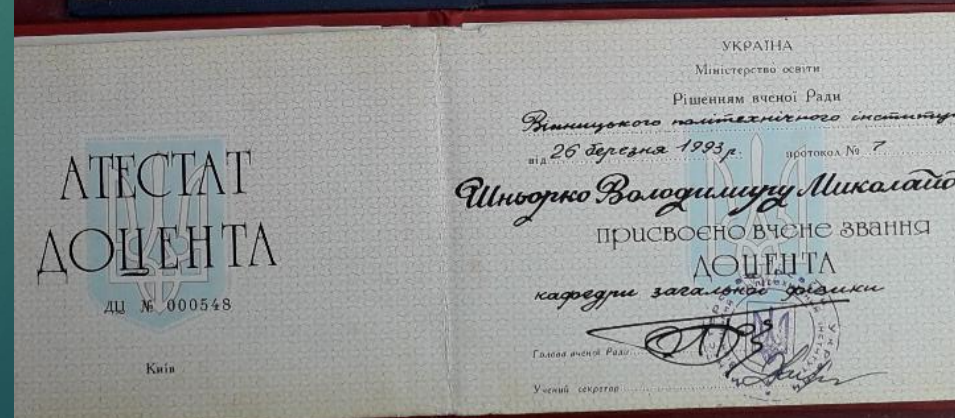 АТЕСТАТ
ДОЦЕНТА
ДЦ № 000548
Київ
УКРАЇНА
Міністерство освіти
Рішенням вченої Ради
Вінницького політехнічного інституту
від 26 березня 1993 р. протокол № 7
Шньорко Володимиру Миколайо
присвоєно вчене звання
ДОЦЕНТА
кафедри загальної фізики
Голова вченої Ради
Учений секретар